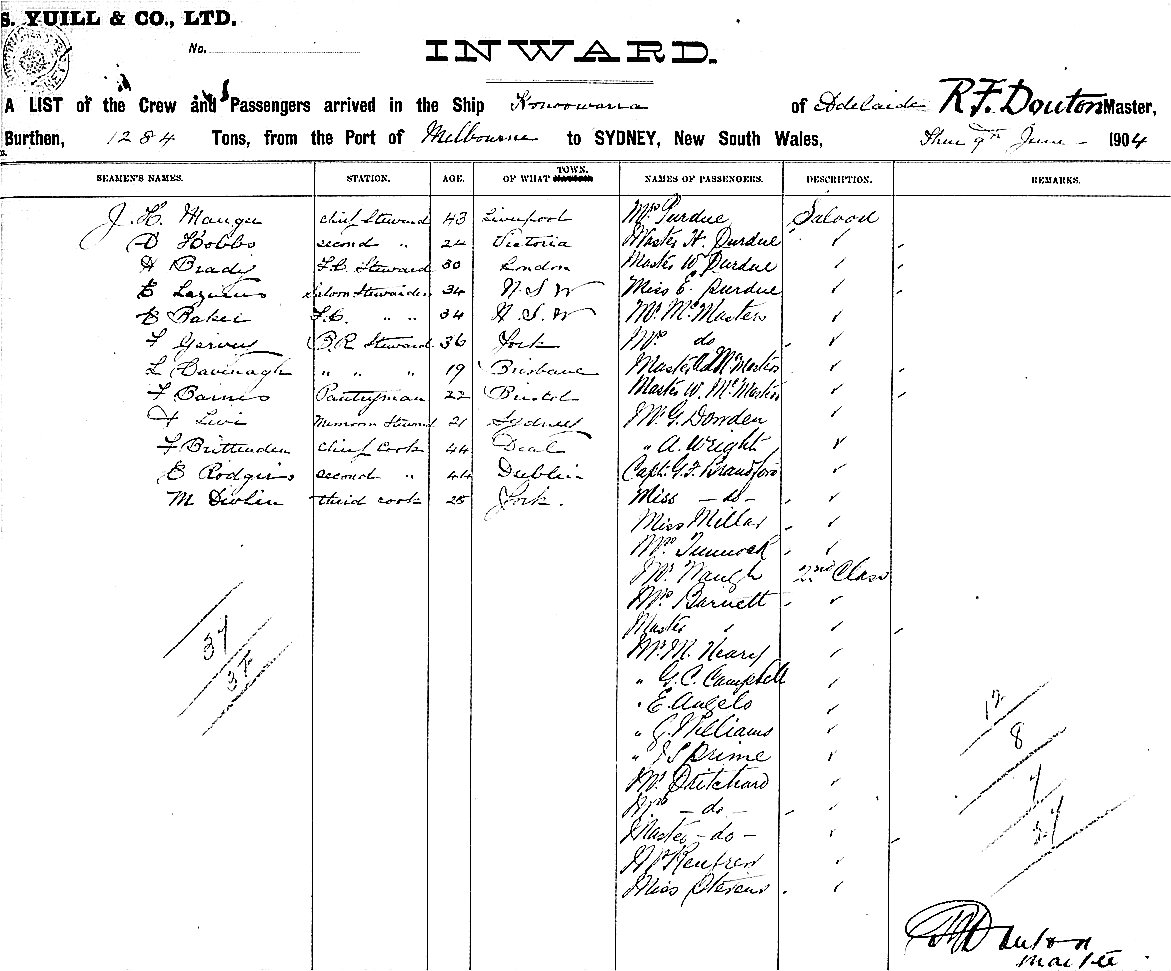 S. YUILL & CO., LTD.
No.
INWARD.
A LIST of the Crew and Passengers arrived in the Ship Konoowarra of Adelaide R.F. Douton Master,
Burthen, 1284 Tons, from the Port of Melbourne to SYDNEY, New South Wales, 9th June 1904
SEAMEN'S NAMES. STATION. AGE. OF WHAT TOWN. NAMES OF PASSENGERS. DESCRIPTION. REMARKS.
J. H. Chief Steward 43 Liverpool Mrs Purdue Saloon
D Hobbs second " 24 Victoria Master H. Purdue ✓
H Brady F.C. Steward 30 London Master W. Purdue ✓
E Lazarus Saloon Stewardess 34 N.S.W Miss E. Purdue ✓
E Baker F.C. " " 34 N.S.W Mr McMasters ✓
F B.R. Steward 36 York Mrs do ✓
L Cavinagh " " " 19 Brisbane Master McMasters ✓
F Barnes Pantryman 22 Bristol Master W. McMasters ✓
H Levi Messroom Steward 21 Sydney Mr G. Dowden ✓
F Brittenden Chief Cook 44 Deal " A. Wright ✓
E Rodgers second " 44 Dublin Capt. G.F. Brandford ✓
M Devlin third cook 25 York. Miss - do - ✓
Miss Millar ✓
Mrs ✓
Mr Waugh 2nd Class
Mrs Barnett ✓
Master " ✓
Mr M. Neary ✓
" G.C. Campbell ✓
" E. Angelo ✓
" G. Williams ✓
" Prime ✓
Mr Pritchard ✓
Mrs - do - ✓
Master - do - ✓
Mr Rentren ✓
Miss Stevens ✓
37
37
12
8
7
27
Douton
Master